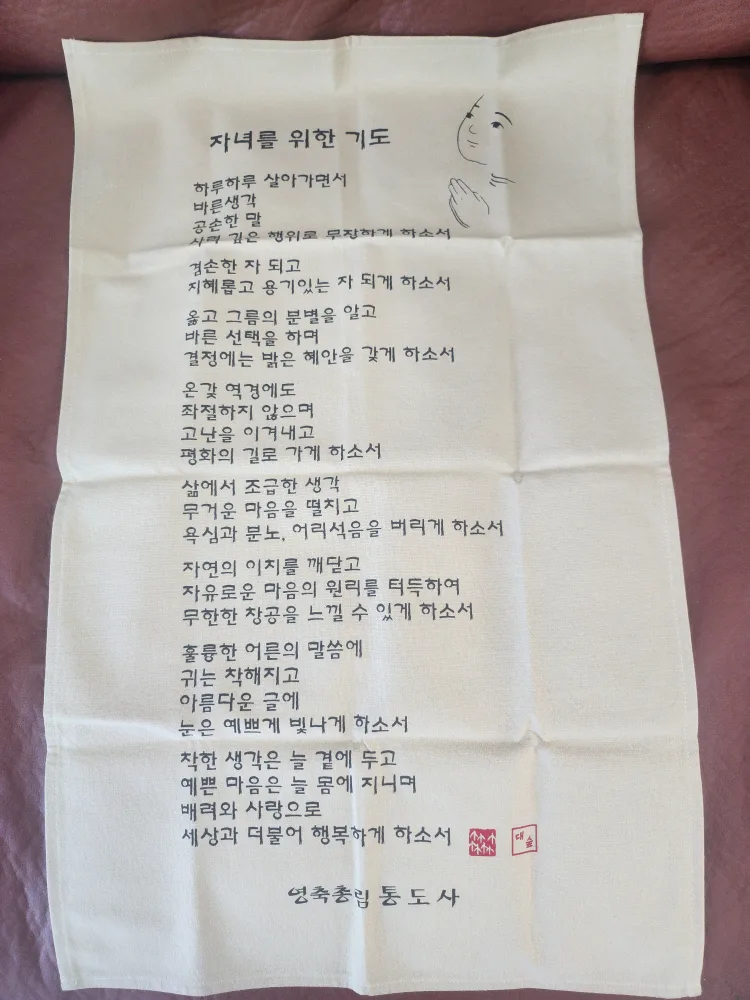 자녀를 위한 기도
하루하루 살아가면서
바른생각
공손한 말
사려 깊은 행위로 무장하게 하소서
겸손한 자 되고
지혜롭고 용기있는 자 되게 하소서
옳고 그름의 분별을 알고
바른 선택을 하며
결정에는 밝은 혜안을 갖게 하소서
온갖 역경에도
좌절하지 않으며
고난을 이겨내고
평화의 길로 가게 하소서
삶에서 조급한 생각
무거운 마음을 떨치고
욕심과 분노, 어리석음을 버리게 하소서
자연의 이치를 깨닫고
자유로운 마음의 원리를 터득하여
무한한 창공을 느낄 수 있게 하소서
훌륭한 어른의 말씀에
귀는 착해지고
아름다운 글에
눈은 예쁘게 빛나게 하소서
착한 생각은 늘 곁에 두고
예쁜 마음은 늘 몸에 지니며
배려와 사랑으로
세상과 더불어 행복하게 하소서
대숲
영축총림 통도사